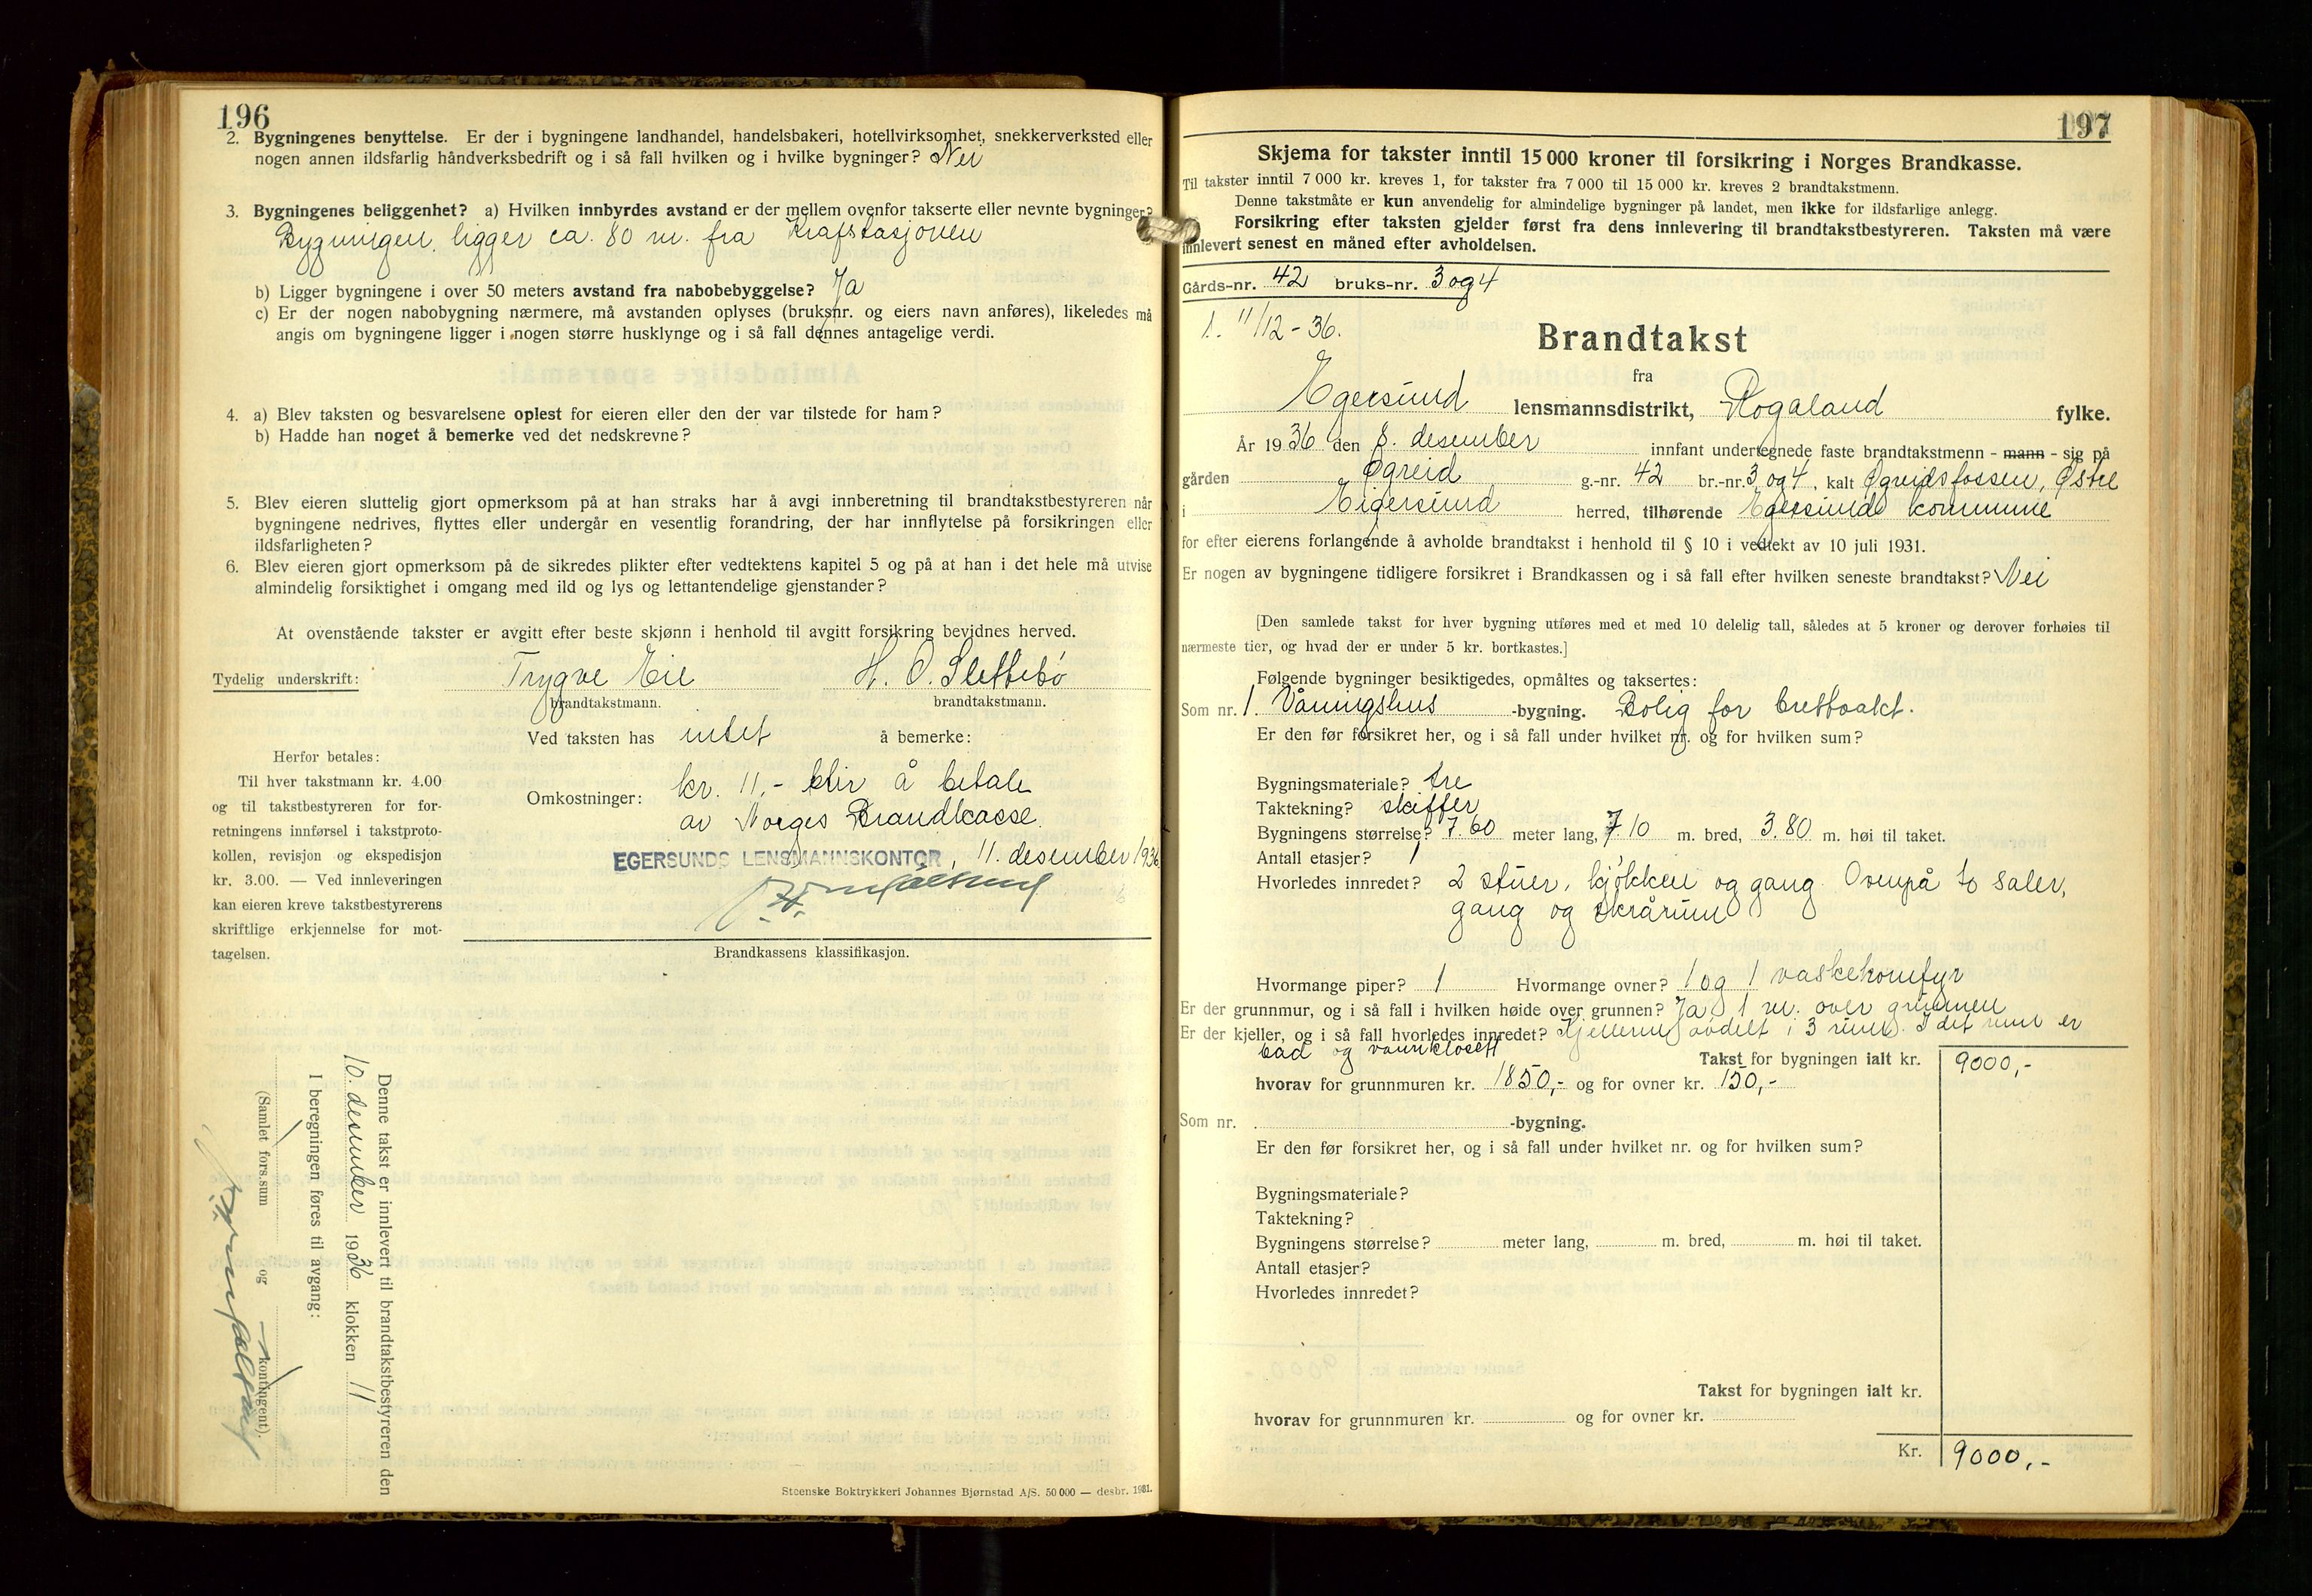 196
2. Bygningenes benyttelse. Er der i bygningene landhandel, handelsbakeri, hotellvirksomhet, snekkerverksted eller
nogen annen ildsfarlig håndverksbedrift og i så fall hvilken og i hvilke bygninger? Nei
3. Bygningenes beliggenhet? a) Hvilken innbyrdes avstand er der mellem ovenfor takserte eller nevnte bygninger?
Bygningen ligger ca. 80 m. fra Krafstasjonen
b) Ligger bygningene i over 50 meters avstand fra nabobebyggelse? Ja
c) Er der nogen nabobygning nærmere, må avstanden oplyses (bruksnr. og eiers navn anføres), likeledes må
angis om bygningene ligger i nogen større husklynge og i så fall dennes antagelige verdi.
4. a) Blev taksten og besvarelsene oplest for eieren eller den der var tilstede for ham?
b) Hadde han noget å bemerke ved det nedskrevne?
5. Blev eieren sluttelig gjort opmerksom på at han straks har å avgi innberetning til brandtakstbestyreren når
bygningene nedrives, flyttes eller undergår en vesentlig forandring, der har innflytelse på forsikringen eller
ildsfarligheten?
6. Blev eieren gjort opmerksom på de sikredes plikter efter vedtektens kapitel 5 og på at han i det hele må utvise
almindelig forsiktighet i omgang med ild og lys og lettantendelige gjenstander?
At ovenstående takster er avgitt efter beste skjønn i henhold til avgitt forsikring bevidnes herved.
Tydelig underskrift: Trygve Eie H. O. Slettebø
brandtakstmann. brandtakstmann.
Ved taksten has intet å bemerke:
Herfor betales:
Til hver takstmann kr. 4.00
og til takstbestyreren for for-
retningens innførsel i takstproto-
kollen, revisjon og ekspedisjon
kr. 3.00. — Ved innleveringen
kan eieren kreve takstbestyrerens
skriftlige erkjennelse for mot-
tagelsen.
Omkostninger: kr. 11,- blir å betale
av Norges Brandkasse.
EGERSUNDS LENSMANNSKONTOR, 11. desember 1936
Brandkassens klassifikasjon.
Denne takst er innlevert til brandtakstbestyreren den
10. desember 1936 klokken 11
I beregningen føres til avgang:
(Samlet fors.sum og kontingent).
Steenske Boktrykkeri Johannes Bjørnstad A/S. 50 000 — desbr. 1931.
197
Skjema for takster inntil 15 000 kroner til forsikring i Norges Brandkasse.
Til takster inntil 7 000 kr. kreves 1, for takster fra 7 000 til 15 000 kr. kreves 2 brandtakstmenn.
Denne takstmåte er kun anvendelig for almindelige bygninger på landet, men ikke for ildsfarlige anlegg.
Forsikring efter taksten gjelder først fra dens innlevering til brandtakstbestyreren. Taksten må være
innlevert senest en måned efter avholdelsen.
Gårds-nr. 42 bruks-nr. 3 og 4
1. 11/12-36.
Brandtakst
fra
Egersund lensmannsdistrikt, Rogaland fylke.
År 1936 den 8. desember innfant undertegnede faste brandtakstmenn - mann - sig på
gården Øgreid g.-nr. 42 br.-nr. 3 og 4, kalt Øgreidsfossen, Østre
i Eigersund herred, tilhørende Egersunds kommune
for efter eierens forlangende å avholde brandtakst i henhold til § 10 i vedtekt av 10 juli 1931.
Er nogen av bygningene tidligere forsikret i Brandkassen og i så fall efter hvilken seneste brandtakst? Nei
[Den samlede takst for hver bygning utføres med et med 10 delelig tall, således at 5 kroner og derover forhøies til
nærmeste tier, og hvad der er under 5 kr. bortkastes.]
Følgende bygninger besiktigedes, opmåltes og taksertes:
Som nr. 1. Våningshus -bygning. Bolig for
Er den før forsikret her, og i så fall under hvilket nr. og for hvilken sum?
Bygningsmateriale? tre
Taktekning? skiffer
Bygningens størrelse? 7.60 meter lang, 7.10 m. bred, 3.80 m. høi til taket.
Antall etasjer? 1
Hvorledes innredet? 2 stuer, kjøkken og gang. Ovenpå to saler,
gang og skrårum
Hvormange piper? 1 Hvormange ovner? 1 og 1 vaskekomfyr
Er der grunnmur, og i så fall i hvilken høide over grunnen? Ja, 1 m. over grunnen
Er der kjeller, og i så fall hvorledes innredet? Kjelleren avdelt i 3 rum. I det rum er
bad og vannklosett
Takst for bygningen ialt kr. 9000,-
hvorav for grunnmuren kr. 1850,- og for ovner kr. 150,-
Som nr. -bygning.
Er den før forsikret her, og i så fall under hvilket nr. og for hvilken sum?
Bygningsmateriale?
Taktekning?
Bygningens størrelse? meter lang, m. bred, m. høi til taket.
Antall etasjer?
Hvorledes innredet?
Takst for bygningen ialt kr.
hvorav for grunnmuren kr. og for ovner kr.
Kr. 9000,-